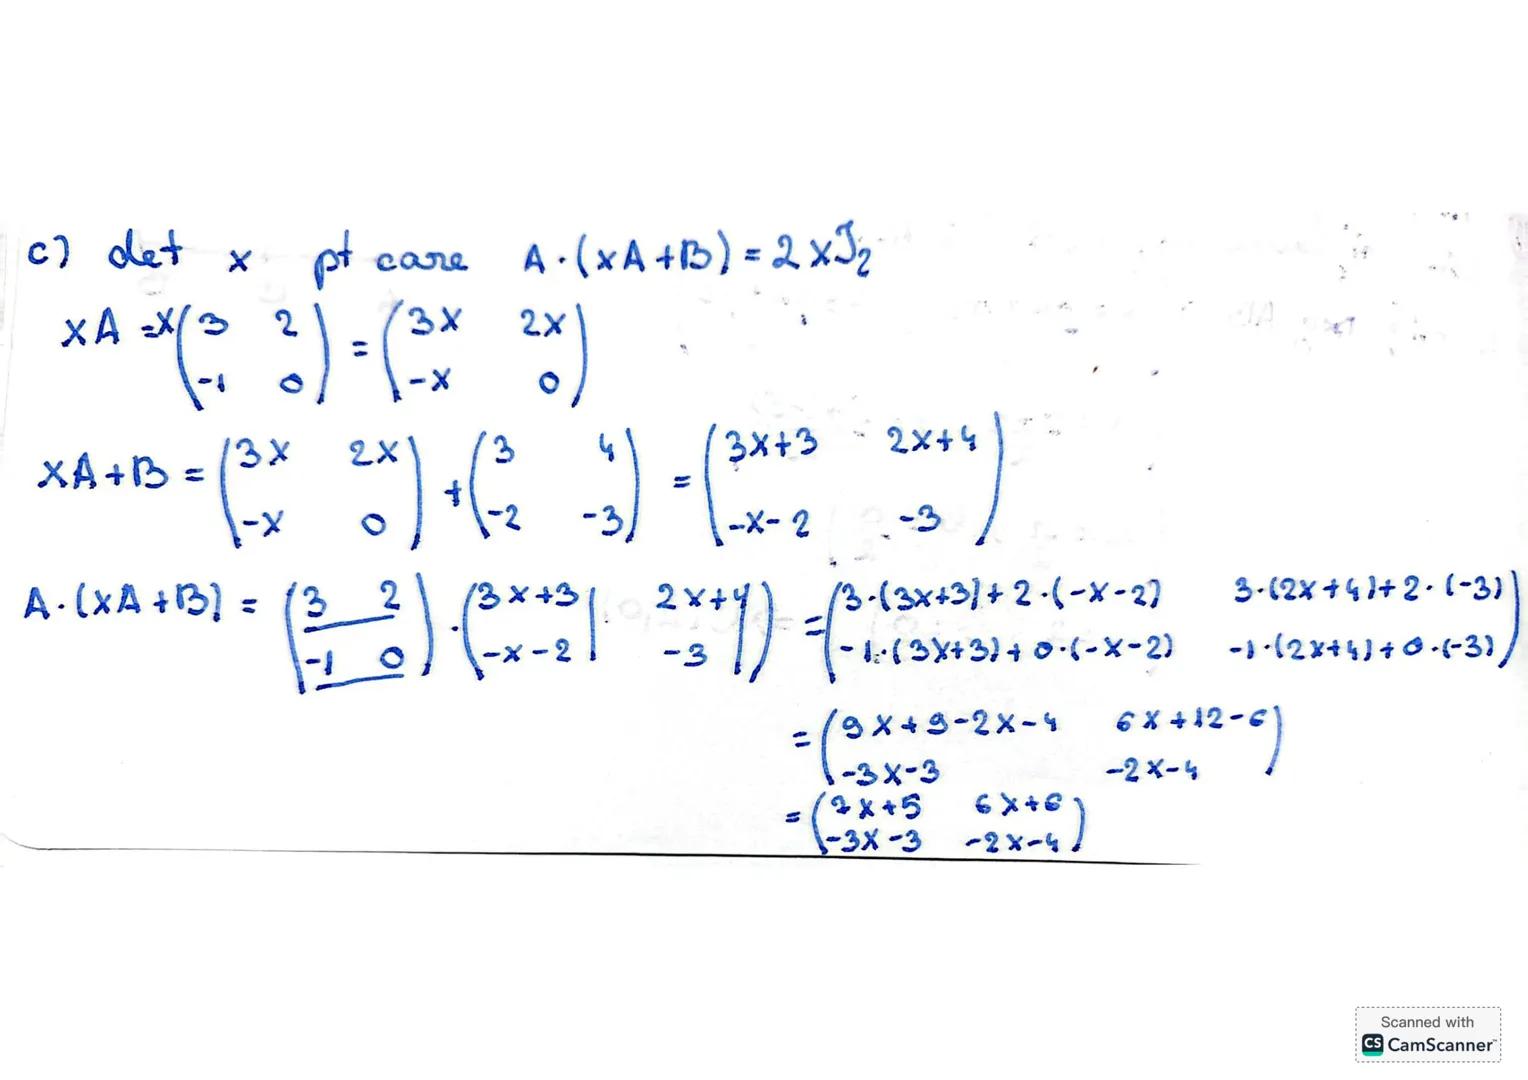 c) det x pt care A·(xA+B) = 2xI₂
xA = x(3 2; -1 0) = (3x 2x; -x 0)
xA+B = (3x 2x; -x 0) + (3 4; -2 -3) = (3x+3 2x+4; -x-2 -3)
A·(xA+B) = (3 2; -1 0)·(3x+3 2x+4; -x-2 -3) = (3·(3x+3)+2·(-x-2) 3·(2x+4)+2·(-3); -1·(3x+3)+0·(-x-2) -1·(2x+4)+0·(-3))
= (9x+9-2x-4 6x+12-6; -3x-3 -2x-4)
= (7x+5 6x+6; -3x-3 -2x-4)
Scanned with
CS CamScanner